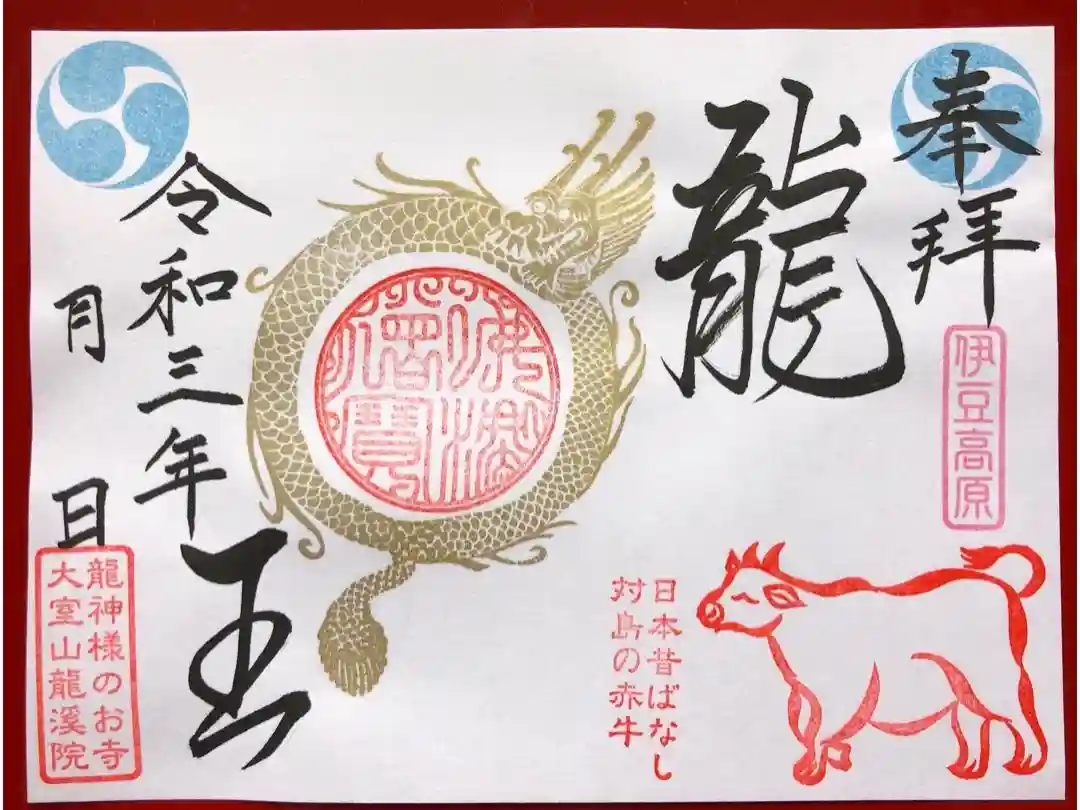 奉拝
伊豆高原
龍
玉
日本昔ばなし
対島の赤牛
令和三年
月 日
龍神様のお寺
大室山龍溪院